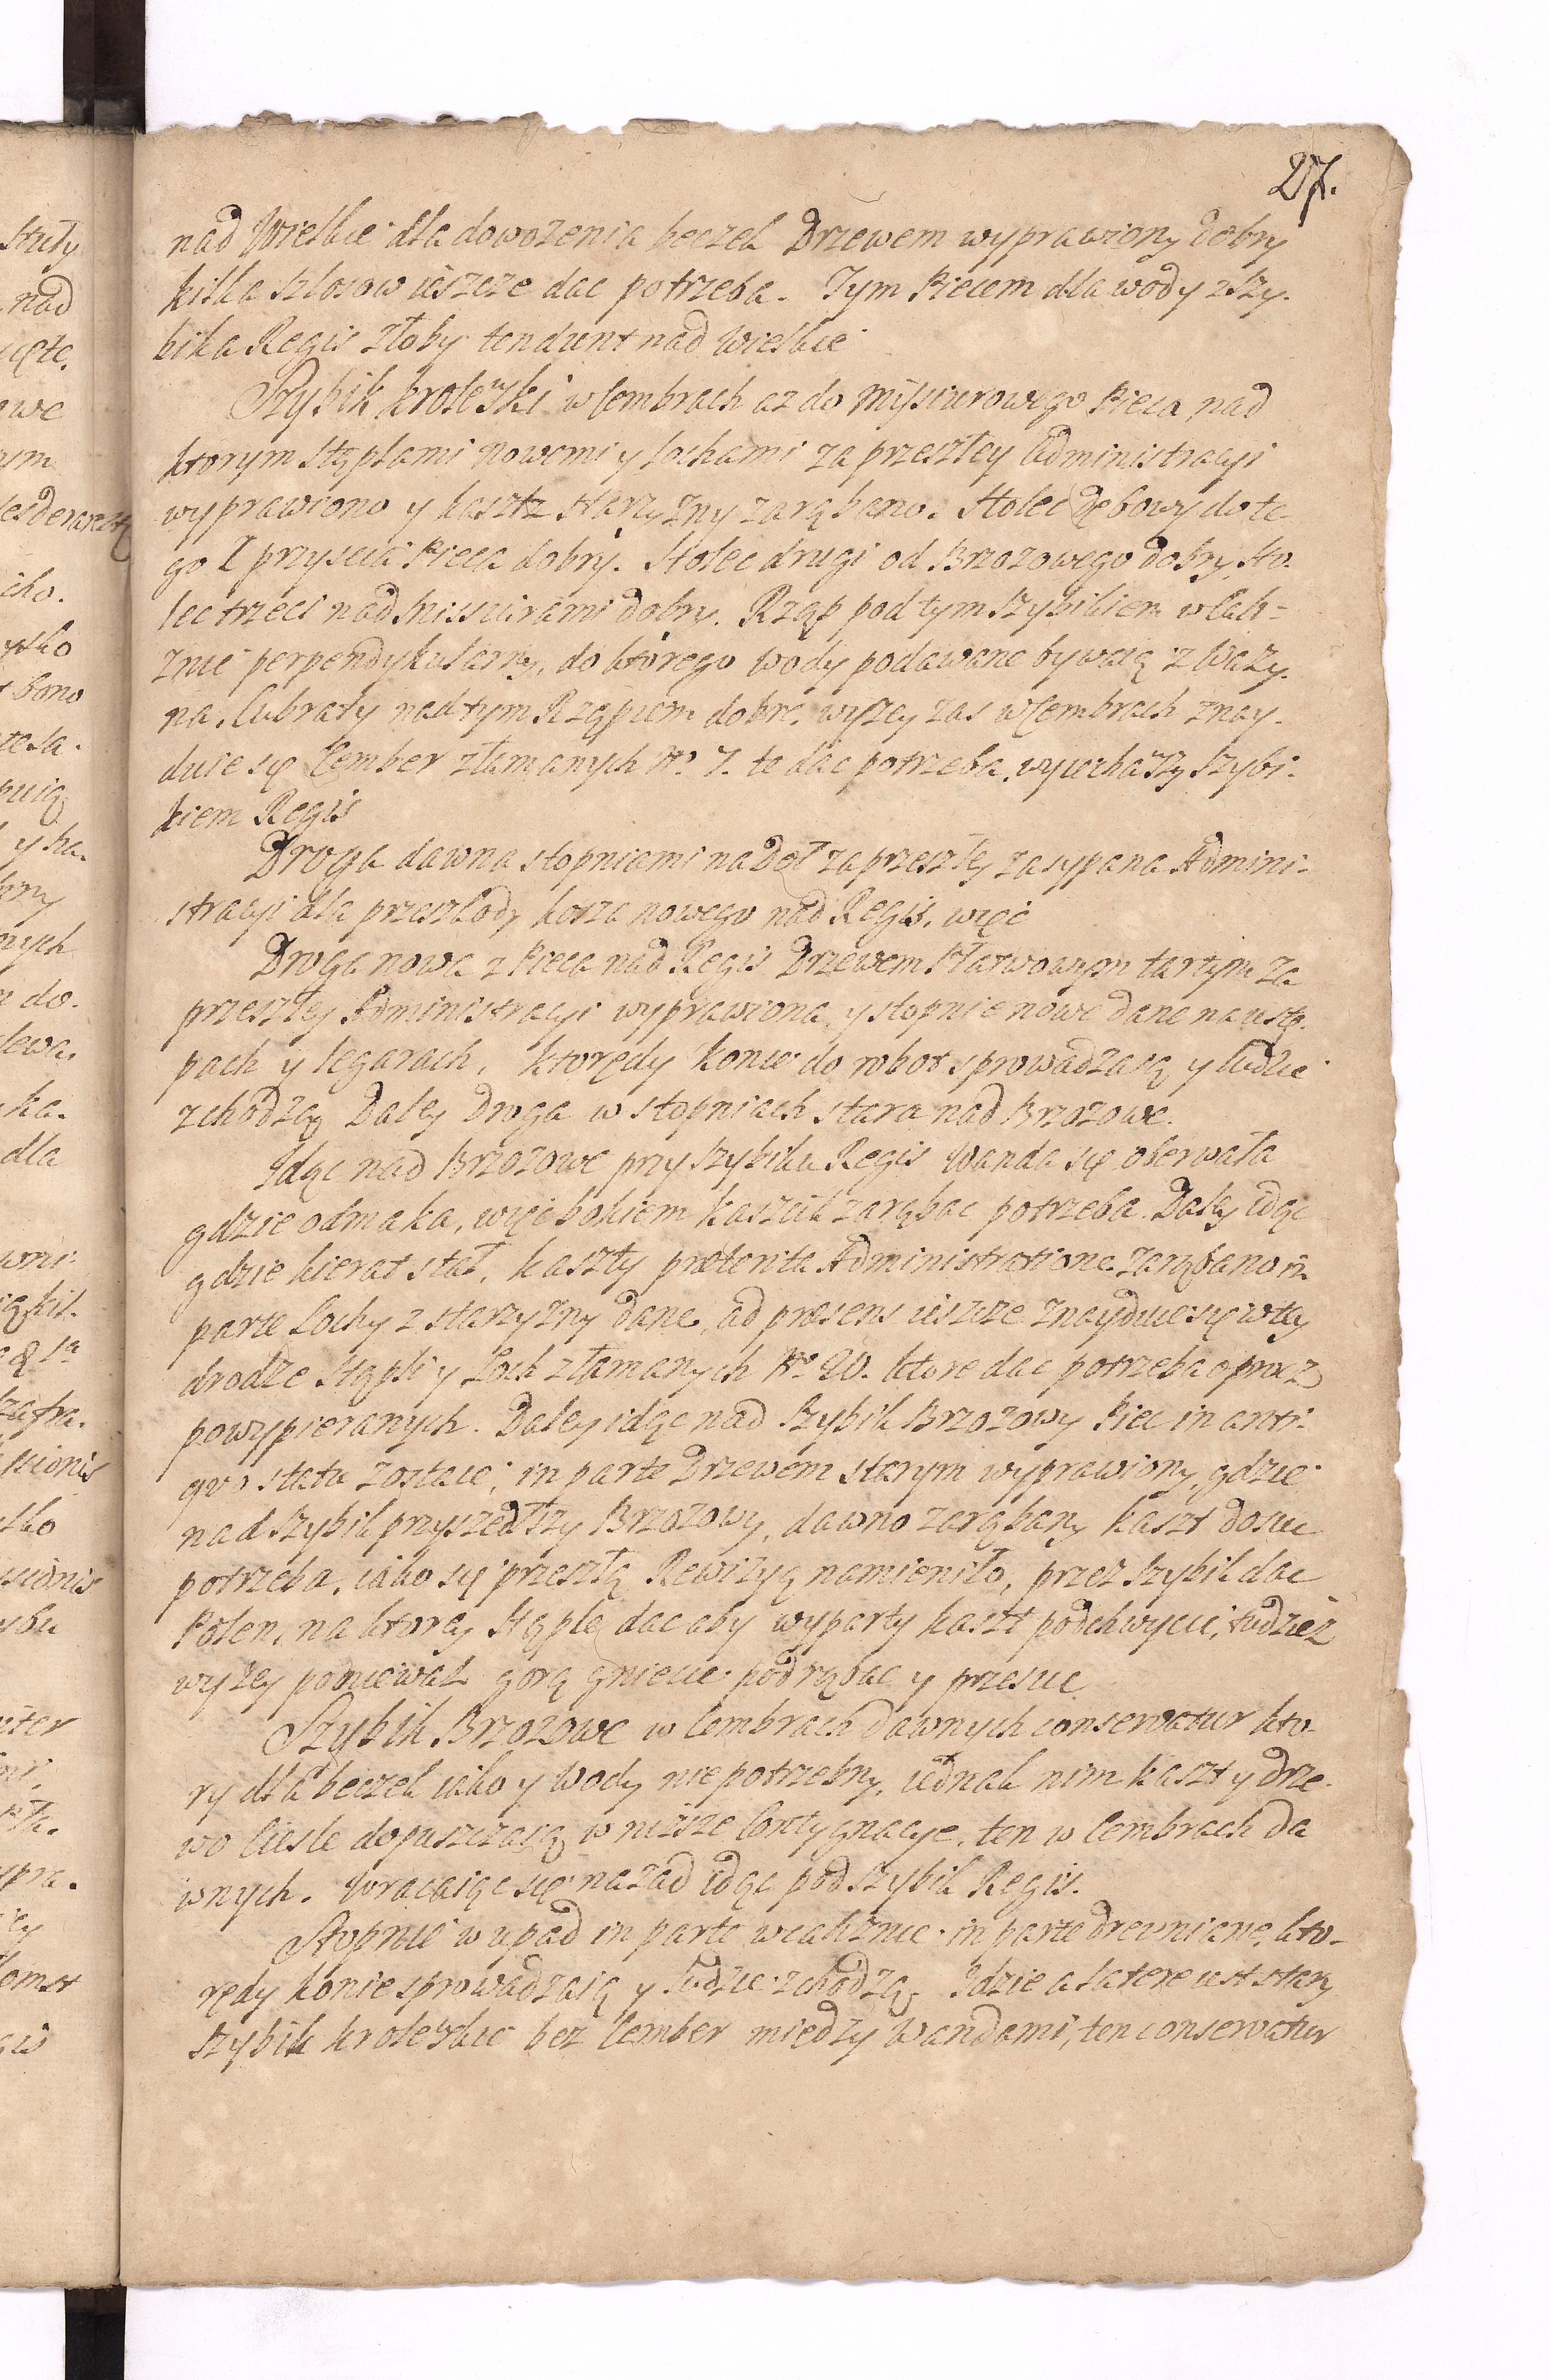 27.
nad Wielkie dla dowożenia beczek Drzewem wyprawiony dobry
kilka szlosow ieszcze dac potrzeba. Tym Piecem dla wody z Szy-
bika Regis Złoby tendunt nad Wielkie
Szybik krolewski w Cembrach az do Misiurowego Pieca, nad
ktorym Stęplami nowemi y sochami za przeszłey Administracyi
wyprawiono y kaszt z starzyzny zarąbano. Stolec Dębowy do te-
go I przyscia Pieca dobry. Stolec drugi od Brzozowego dobry, Sto-
lec trzeci nad Missiurami dobry. Rząp pod tym Szybikiem w Cali-
znie perpendykularny, do ktorego wody podawane bywaią z Waży-
na, Cubraty nad tym Rząpiem dobre, wyzey zas w Cembrach znay-
duie się Cember złamanych No. 7. te dac potrzeba, wyiechawszy Szybi-
kiem Regis
Droga dawna stopniami na Doł za przeszłey zasypana Admini-
stracyi dla przeszkody kosza nowego nad Regis, więc
Droga nowa z Pieca nad Regis Drzewem Płazwowym tartym za
przeszłey Administracyi wyprawiona, y stopnie nowe dane na ustę-
pach y legarach, ktorędy Konie do robot sprowadzaią y ludzie
zchodzą Daley Droga w stopniach stara nad Brzozowe.
Idąc nad Brzozowe przy Szybiku Regis Wanda się oberwała
gdzie odmaka, więc bokiem Kaszcik zarąbac potrzeba. Daley idąc
gdzie kierat stał, kaszty præterita Administratione zarąbano in
parte Sochy z starzyzny dane, ad præsens ieszcze znayduie się w tey
drodze Stępli y Soch złamanych No. 20. ktore dac potrzeba oprocz
powypieranych. Daley idąc nad Szybik Brzozowy Piec in anti-
quo statu zostaie, in parte Drzewem starym wyprawiony, gdzie
nad szybik przyszedłszy Brzozowy, dawno zarąbany kaszt dosiec
potrzeba, iako się przeszłą Rewizyą namieniło, przez Szybik dac
Polen, na ktorey Stęple dac aby wyparty kaszt podchwycic, tudziez
wyzey poniewaz gorą gniecie podrąbac y przesiec
Szybik Brzozowe w Cembrach dawnych conservatur kto-
ry dla beczek iako y Wody nie potrzebny, iednak nim kaszt y drze-
wo Ciesle dopuszczaią w niższe Contygnacye, ten w Cembrach da
wnych. Wracaiąc się nazad idąc pod Szybik Regis.
Stopnie w upad in parte w caliznie in parte drewniane, kto-
rędy konie sprowadzaią y ludzie zchodzą. Idzie a latere iest stary
szybik krolewskie bez Cember między Wandami, ten conservatur